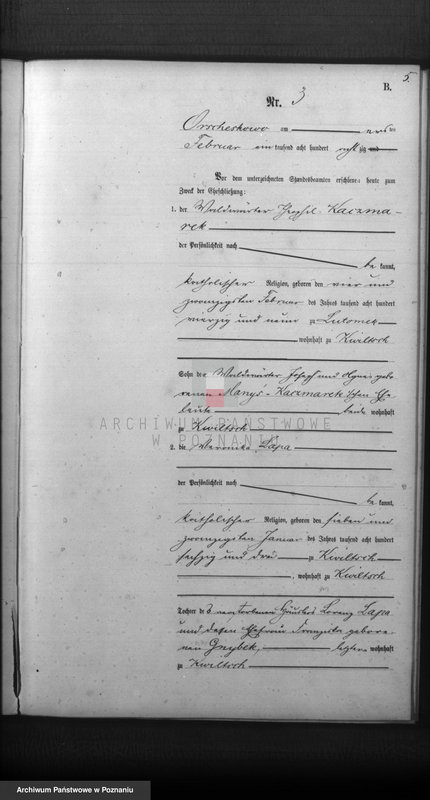 5.
B.
Nr. 3
Orscheskowo am ersten
Februar ein tausend acht hundert acht zig und
Vor dem unterzeichneten Standesbeamten erschienen heute zum
Zweck der Eheschließung:
1. der Waldwärter Kaczma-
rek
der Persönlichkeit nach
be kannt,
katholischer Religion, geboren den vier und
zwanzigsten Februar des Jahres tausend acht hundert
vierzig und neun zu Lutomek
wohnhaft zu Kwiltsch
Sohn des Waldwärter Joseph und Agnes gebo
renen Kaczmarek'schen Ehe
leute beide wohnhaft
zu Kwiltsch
ARCHIWUM PAŃSTWOWE
W POZNANIU
2. die Veronika Lapa
der Persönlichkeit nach
be kannt,
katholischer Religion, geboren den sieben und
zwanzigsten Januar des Jahres tausend acht hundert
sechzig und drei zu Kwiltsch
, wohnhaft zu Kwiltsch
Tochter des verstorbenen Häusler Lorenz Lapa
und dessen Ehefrau Franziska gebore
nen letztere wohnhaft
zu Kwiltsch
Archiwum Państwowe w Poznaniu